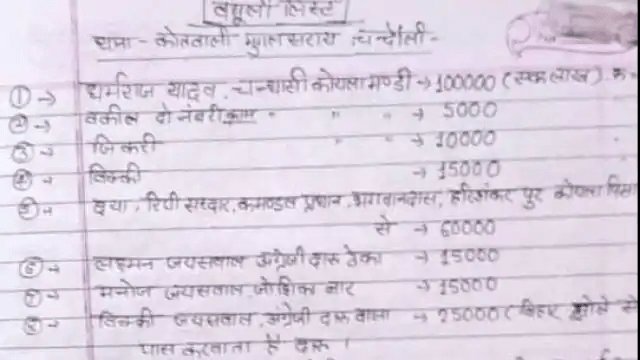 वसूली लिस्ट
थाना - कोतवाली मुगलसराय, चन्दौली -
① → धर्मराज यादव, चन्धासी कोयला मण्डी → 100000 (एक लाख)
② → वकील दो नंबरी काम " " " → 5000
③ → → 10000
④ → विक्की → 15000
⑤ → दया, रिपी सरदार, कमण्डल प्रधान, भगवानदास, हरिशंकर पुर कोयला
से → 60000
⑥ → लक्ष्मन जयसवाल अंग्रेजी दारू ठेका → 15000
⑦ → मनोज जयसवाल, बार → 15000
⑧ → विक्की जयसवाल, अंग्रेजी दारू वाला → 25000 (बिहार
पास करवाता है दारू ।